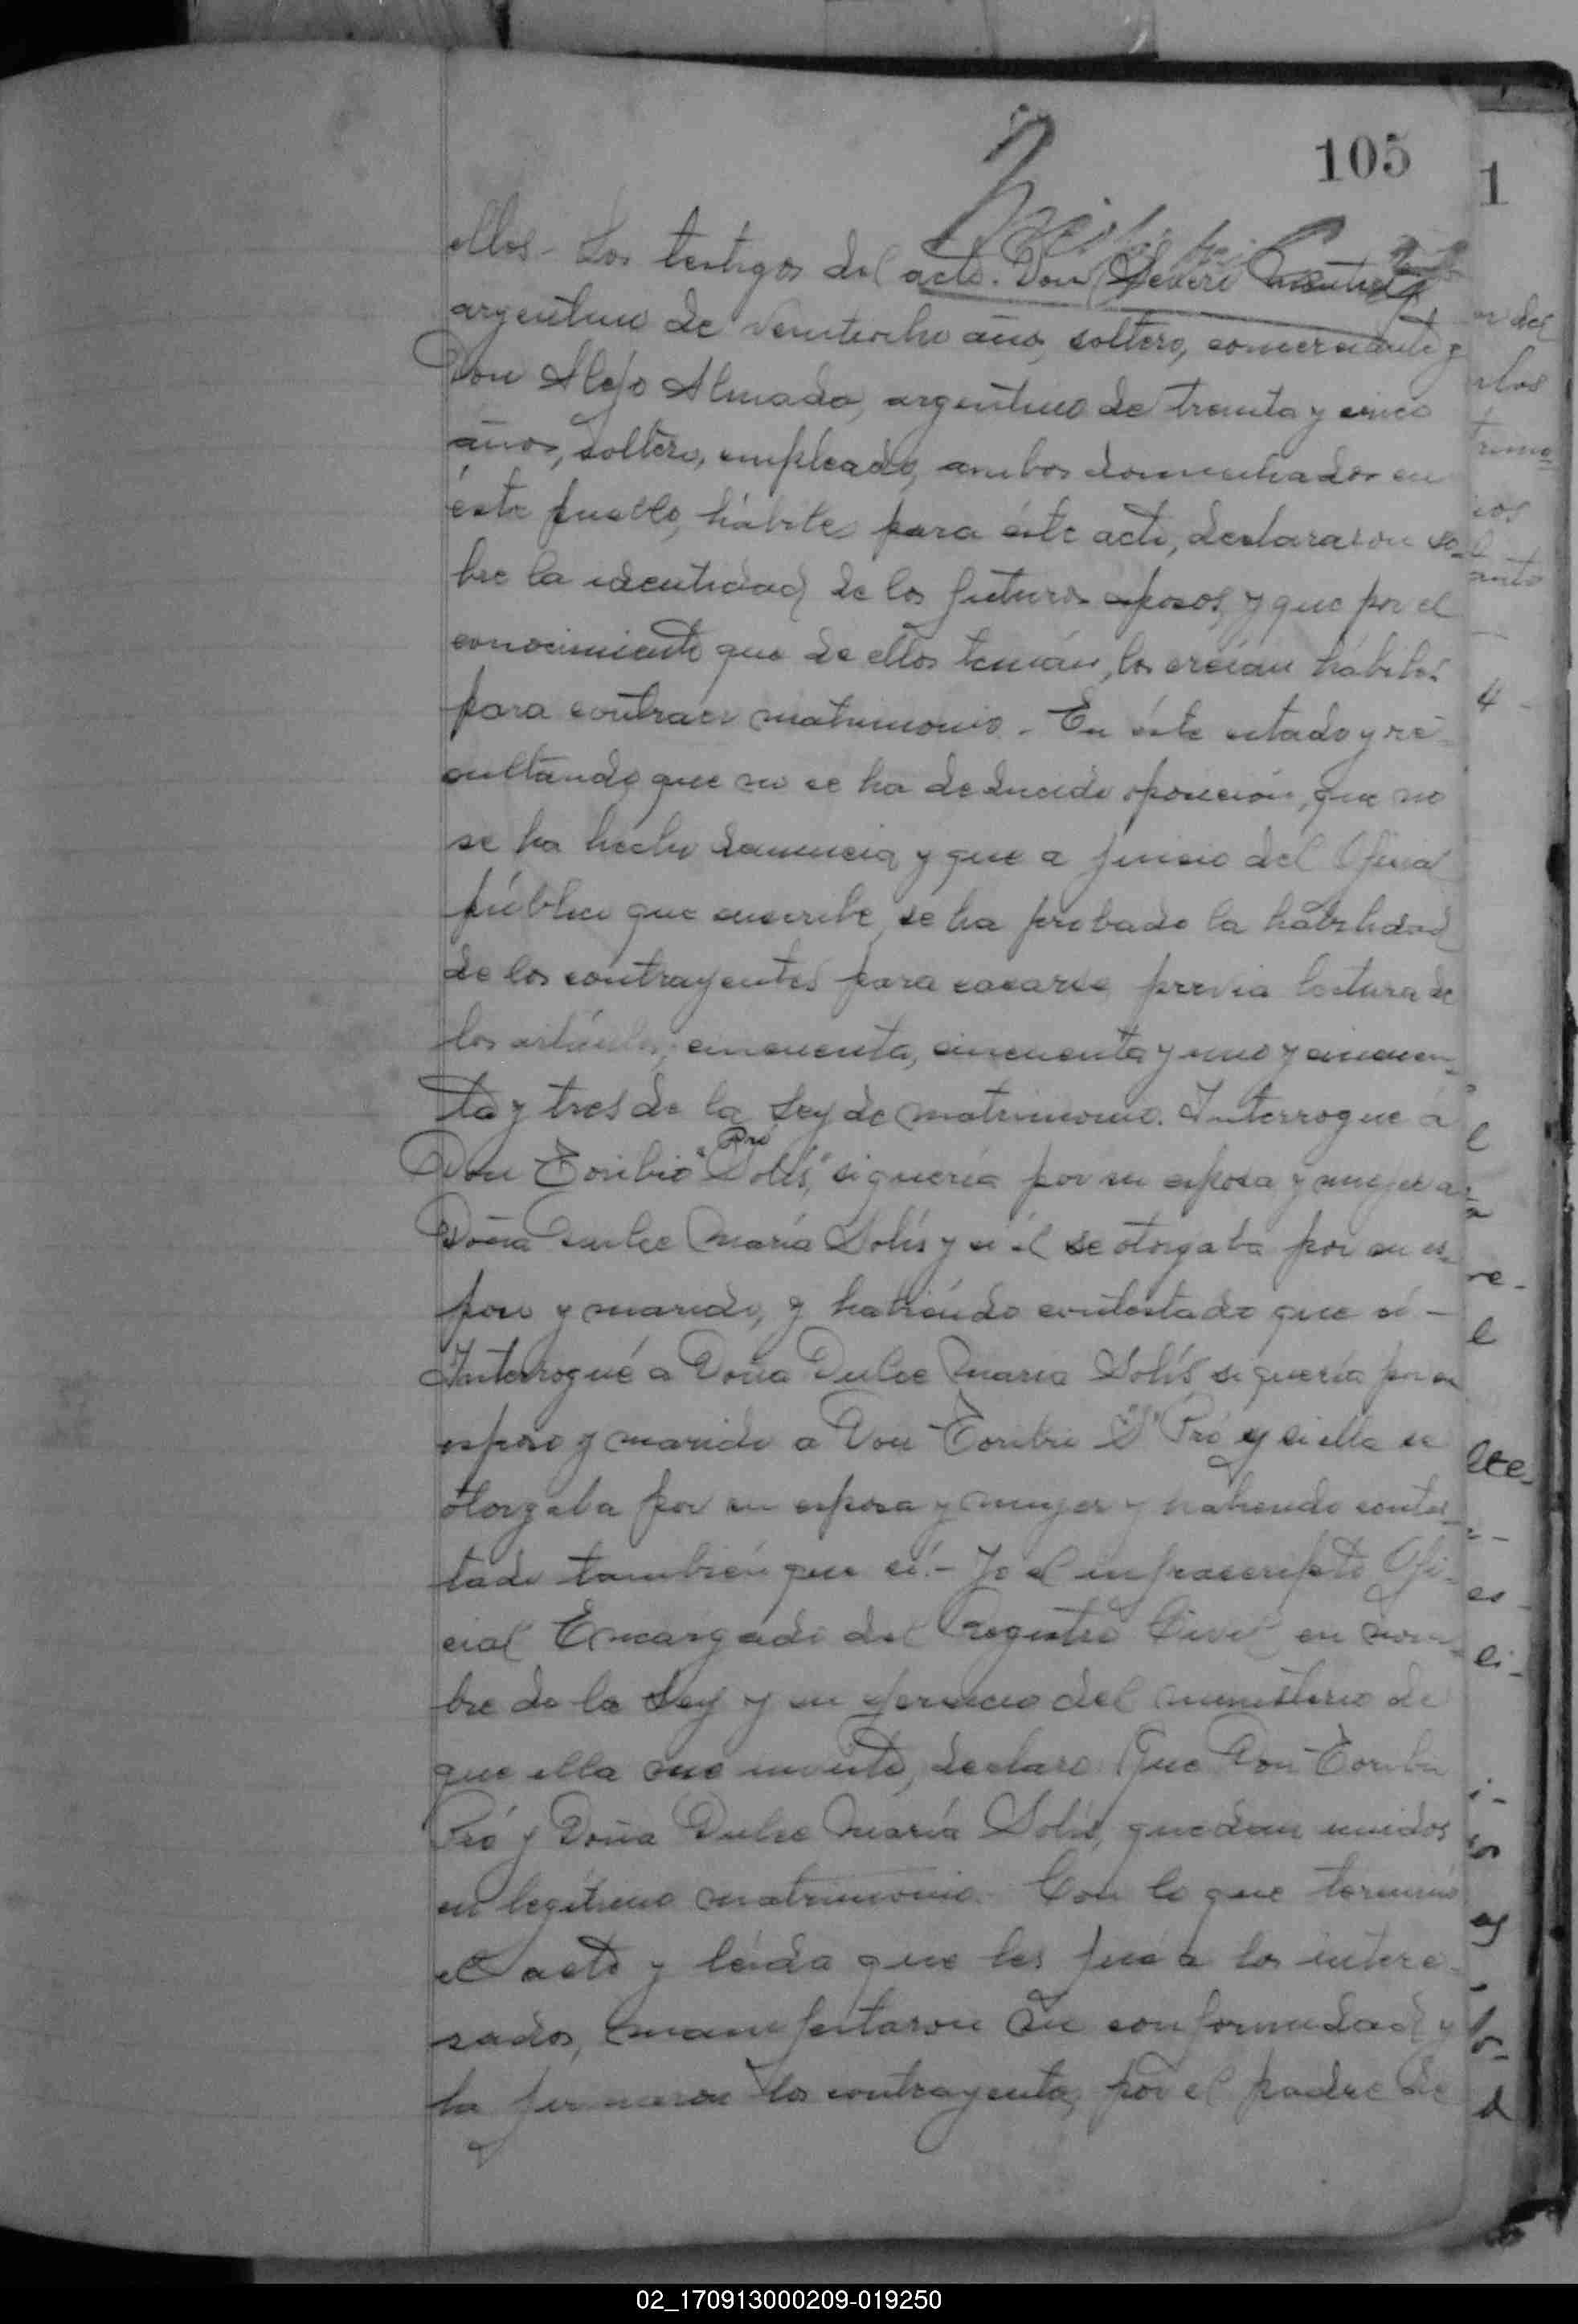 105
ellos - Los testigos del acto. Don Severo
argentino de veintiocho años, soltero, comerciante y
Don Alejo Almada, argentino de treinta y cinco
años, soltero, empleado, ambos domiciliados en
éste pueblo, hábiles para éste acto, declararon so-
bre la identidad de los futuros esposos, y que por el
conocimiento que de ellos tenían, los creían hábiles
para contraer matrimonio. - En éste estado y re-
sultando que no se ha deducido oposición, que no
se ha hecho denuncia, y que a juicio del Oficial
público que suscribe, se ha probado la habilidad
de los contrayentes para casarse, previa lectura de
los artículos, cincuenta, cincuenta y uno y cincuen-
ta y tres de la Ley de matrimonio. Interrogue á
Pró
Don Toribio "Solís," si quería por su esposa y mujer a
Doña Dulce María Solís y si él se otorgaba por su es-
poso y marido, y habiendo contestado que sí -
Interrogué a Doña Dulce María Solís si quería por su
esposo y marido a Don Toribio "S" Pró y si ella se
otorgaba por su esposa y mujer y habiendo contes-
tado también que sí. - Yo el infrascripto Ofi-
cial Encargado del Registro Civil en nom-
bre de la Ley y en ejercicio del ministerio de
que ella me inviste, declaro: Que Don Toribio
Pró y Doña Dulce María Solís, quedan unidos
en legítimo matrimonio. Con lo que terminó
el acto y leída que les fué a los intere-
sados, manifestaron su conformidad y
la firmaron los contrayentes, por el padre de
02_170913000209-019250